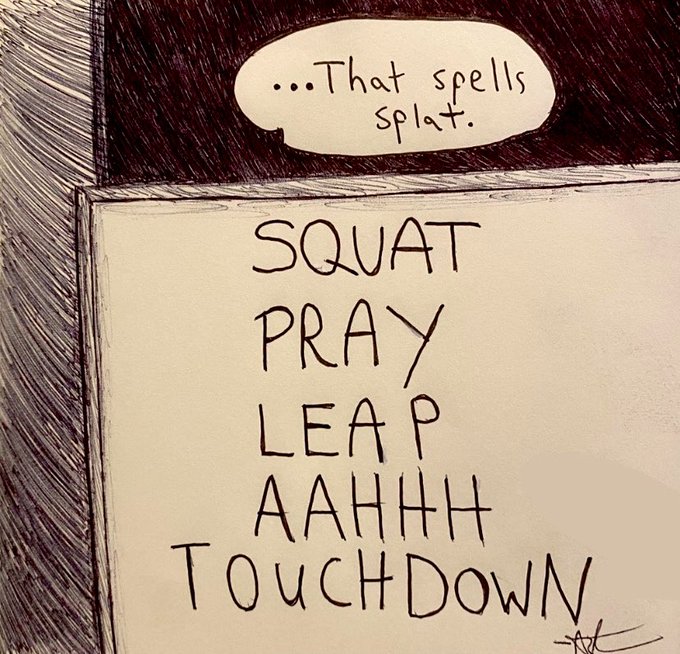 ...That spells
splat.
SQUAT
PRAY
LEAP
AAHHH
TOUCHDOWN